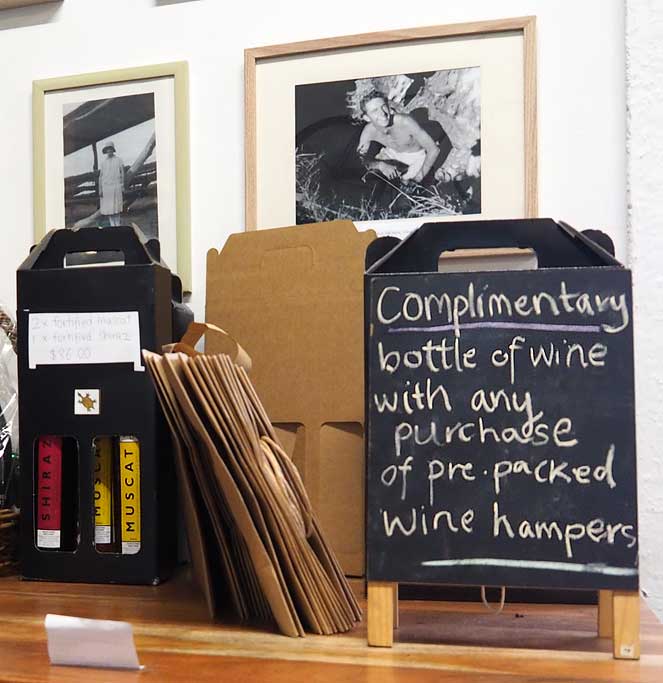 2x fortified muscat
1 x fortified Shiraz
$86.00
SHIRAZ
MUSCAT
MUSCAT
Complimentary
bottle of wine
with any
purchase
of pre-packed
wine hampers